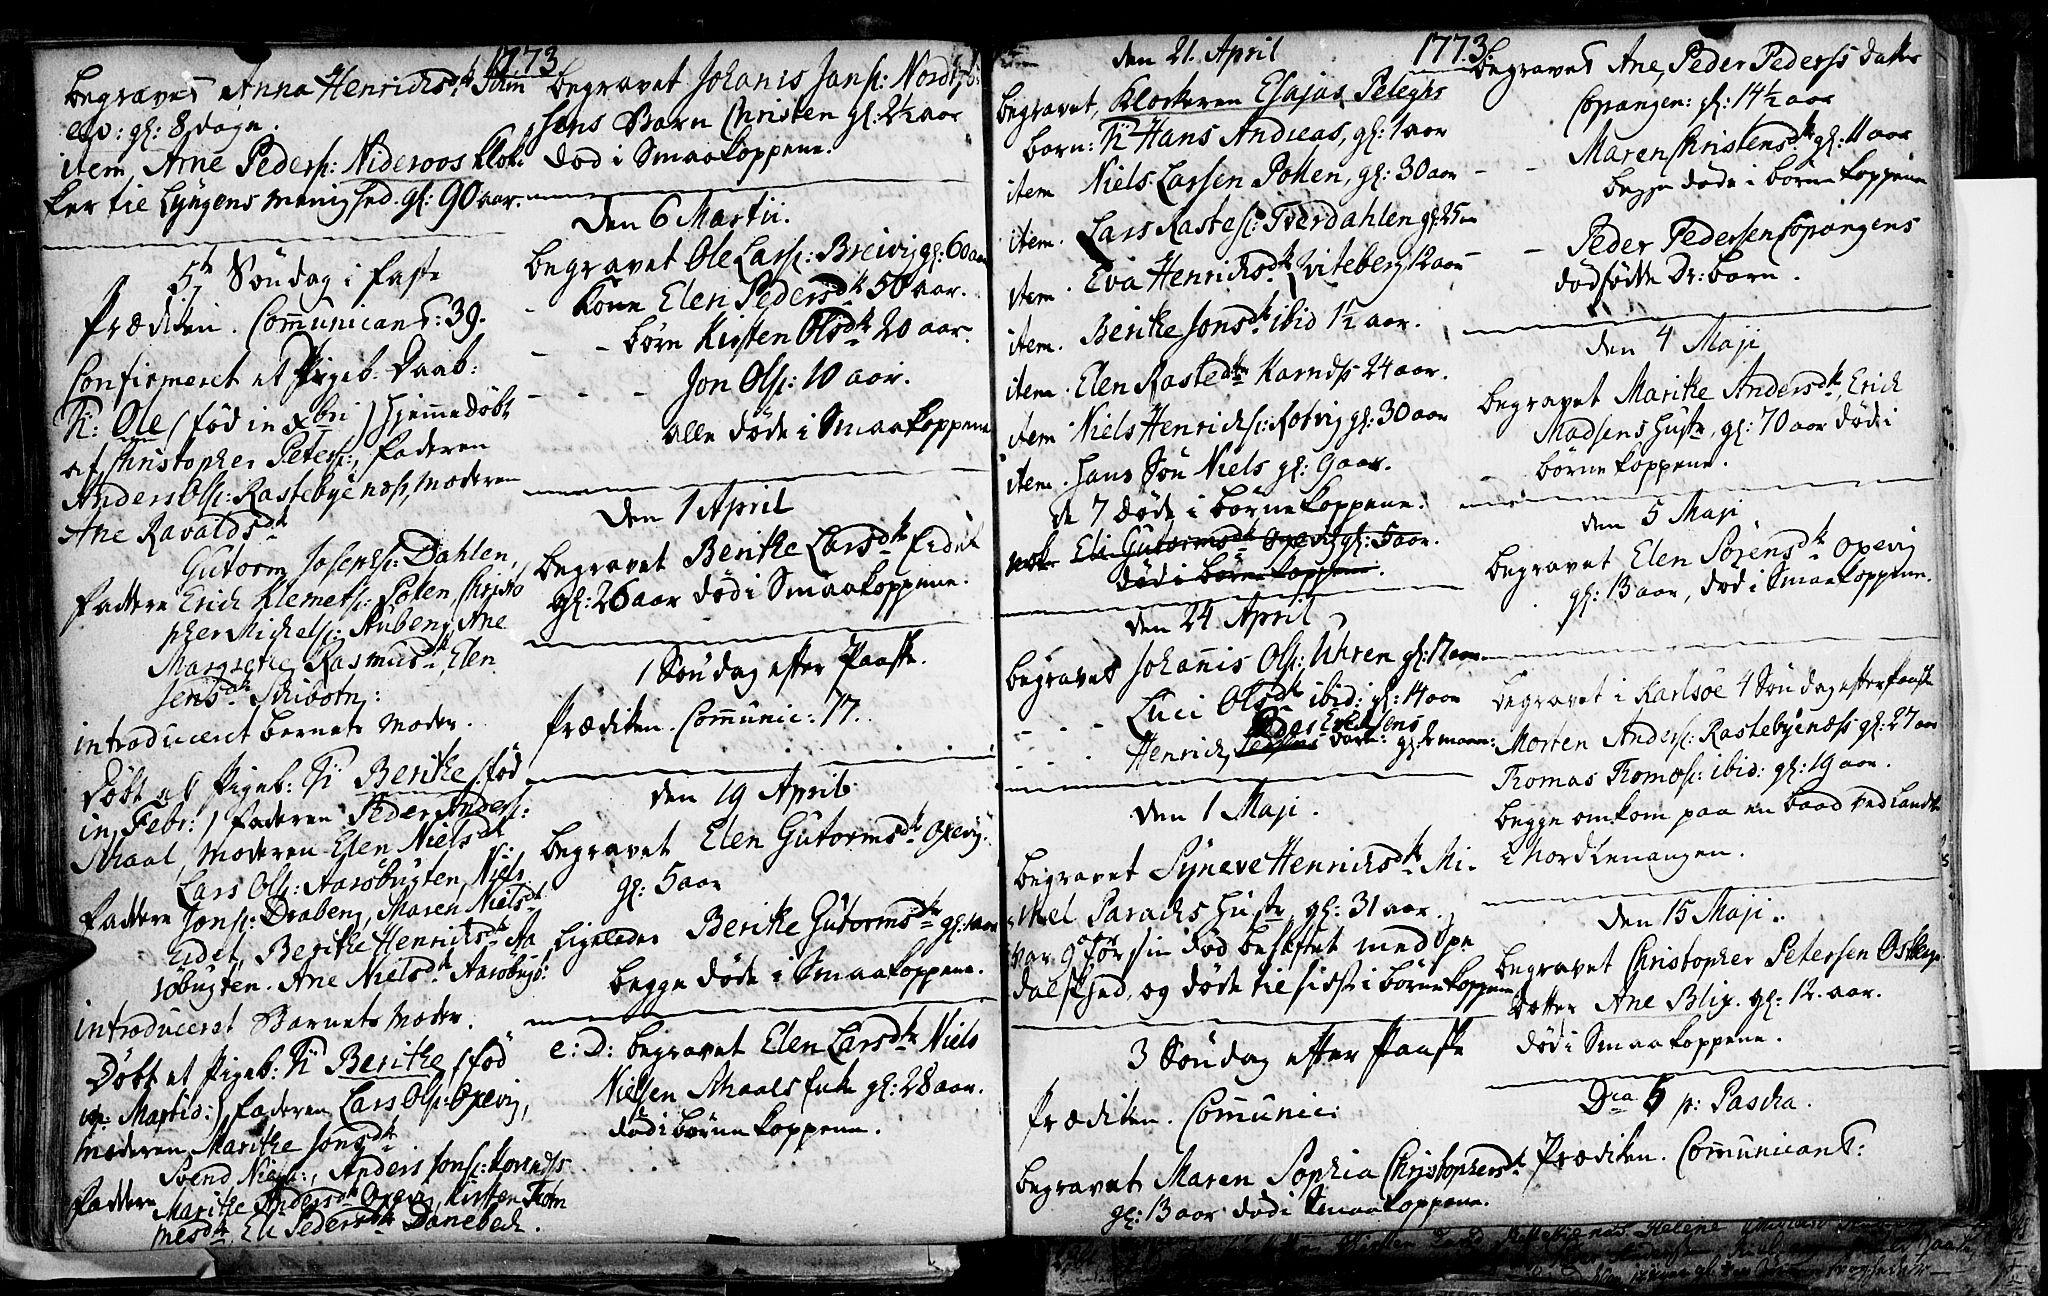 1773
begravet Anna Henrichsdr.
gl: 8 dage.
item, Arne Peders: Nideroos klok¬
ker til Lyngens menighed. gl: 90 aar.
5te Søndag i faste
Prædiken. Communicant: 39.
Confirmeret et Pigeb. Daab:
N: Ole (fød in xbri) hjemmedøbt
af Christopher Peters:, faderen
Anders Ols: Rastebyenæss, moderen
Ane Ravaldsdr
Gutorm Josephs: Dahlen,
faddere Erich Klemets: Polen, Christo
pher Michels: Auberg, Ane
Margrethe Rasmusdr, Elen
Jensdr Schibotn:
introduceret barnets moder.
Døbt et Pigeb: N: Berithe (fød
in Febr:) faderen Peder Anders:
Skaal, moderen Elen Nielsdr
Lars Ols: Aarøbugten, Niels
faddere Jons: Draberg, Maren Nielsdr
Eidet, Berithe Henrichsdr Aa
røbugten. Ane Nielsdr Aarøbugt:
introduceret Barnets moder.
Døbt et Pigeb: N: Berithe (fød
in Martio:) faderen Lars Ols: Oxevig,
moderen Marithe Jonsdr
Svend Niels:, Anders Jons: Kornes
faddere Marithe Andersdr Oxevig, Kirsten Thom
mesdr, Eli Pedersdr Danebech.
begravet Johanis Jans: Nord
sens Barn Christen gl: 2½ aar
død i Smaakoppene.
Den 6 Martii.
begravet Ole Lars: Breivig gl: 60 aar
- kone Elen Pedersdr 50 aar.
- - børn Kirsten Olsdr 20 aar.
- - - Jon Ols: 10 aar.
alle døde i Smaakoppene
Den 1 April
begravet Berithe Larsdr Eidet
gl: 26 aar død i Smaakoppene.
1 Søndag efter Paaske.
Prædiken. Communic: 77.
den 19 April
begravet Elen Gutormsdr Oxevig.
gl: 5 aar
ligeledes Berithe Gutormsdr gl: 1 aar
begge døde i Smaakoppene.
e: D: begravet Elen Larsdr Niels
Nielsen Skaals Enke gl: 28 aar.
død i børnekoppene.
den 21. April
1773
begravet, Klockeren Esajas Pelegrs
barn: N Hans Andreas, gl: 1 aar
item Niels Larsen Pollen, gl: 30 aar
item. Lars Rastes: Tverdahlen gl: 25 aar
item. Eva Henrichsdr Viteberg 12 aar
item. Berithe Jonsdr ibid 1½ aar.
item. Elen Rastedr Karnæs 24 aar.
item Niels Henrichs: Rotvig gl: 30 aar
item. hans Søn Niels gl: 9 aar.
de 7 døde i børnekoppene.
nok Eli Gutormsdr Oxevig gl: 5 aar.
død i børnekoppene.
den 24 April
begravet Johannis Ols: Uhren gl: 17 aar
- - - Luci Olsdr ibid: gl: 14 aar
Peder Erichsens
- - - Henrich barn: gl:
Den 1 Maji.
begravet Syneve Henrichsdr Mi¬
chel Parachs hustr, gl: 31 aar,
var 9 aar før sin død besmittet med Spe
dalskhed, og døde til sidst i børnekoppene
3 Søndag efter Paaske
Prædiken. Communic:
begravet Maren Sophia Christophersdr
gl: 13 aar død i Smaakoppene.
begravet Ane, Peder Peders datter
Copangen: gl: 14½ aar
- - Maren Christensdr gl: 11 aar
begge døde i børnekoppene
- Peder Pedersen Copangens
dødfødte Dr: barn.
den 4 Maji
begravet Marithe Andersdr, Erich
Madsens hustr, gl: 70 aar død i
børnekoppene.
den 5 Maji
begravet Elen Sørensdr Oxevig
gl: 13 aar, død i Smaakoppene.
begravet i Karlsøe 4 Søndag efter Paaske
Morten Anders: Rastebyenæss gl: 27 aar
Thomas Thomas: ibid: gl: 19 aar.
begge omkom paa en baad ved Landet
i Nordlenangen.
Den 15 Maji.
begravet Christopher Petersen
Datter Ane Blix. gl: 12. aar.
død i Smaakoppene.
Dca 5 p: Pascha.
Prædiken. Communicant: